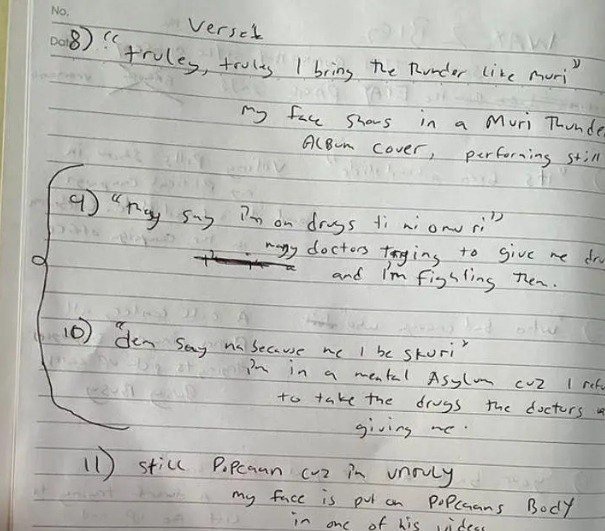 No.
Verse 1
Date
8) "truley, truley I bring the thunder like muri"
my face shows in a Muri Thunde
Album cover, performing still
9) "they say i'm on drugs ti ni omu ri"
many doctors trying to give me dru
and I'm fighting them.
10) "dem say na because me I be skuri"
I'm in a mental Asylum cuz I refu
to take the drugs the doctors
giving me.
11) still Popcaan cuz i'm unruly
my face is put on PoPcaans Body
in one of his videos